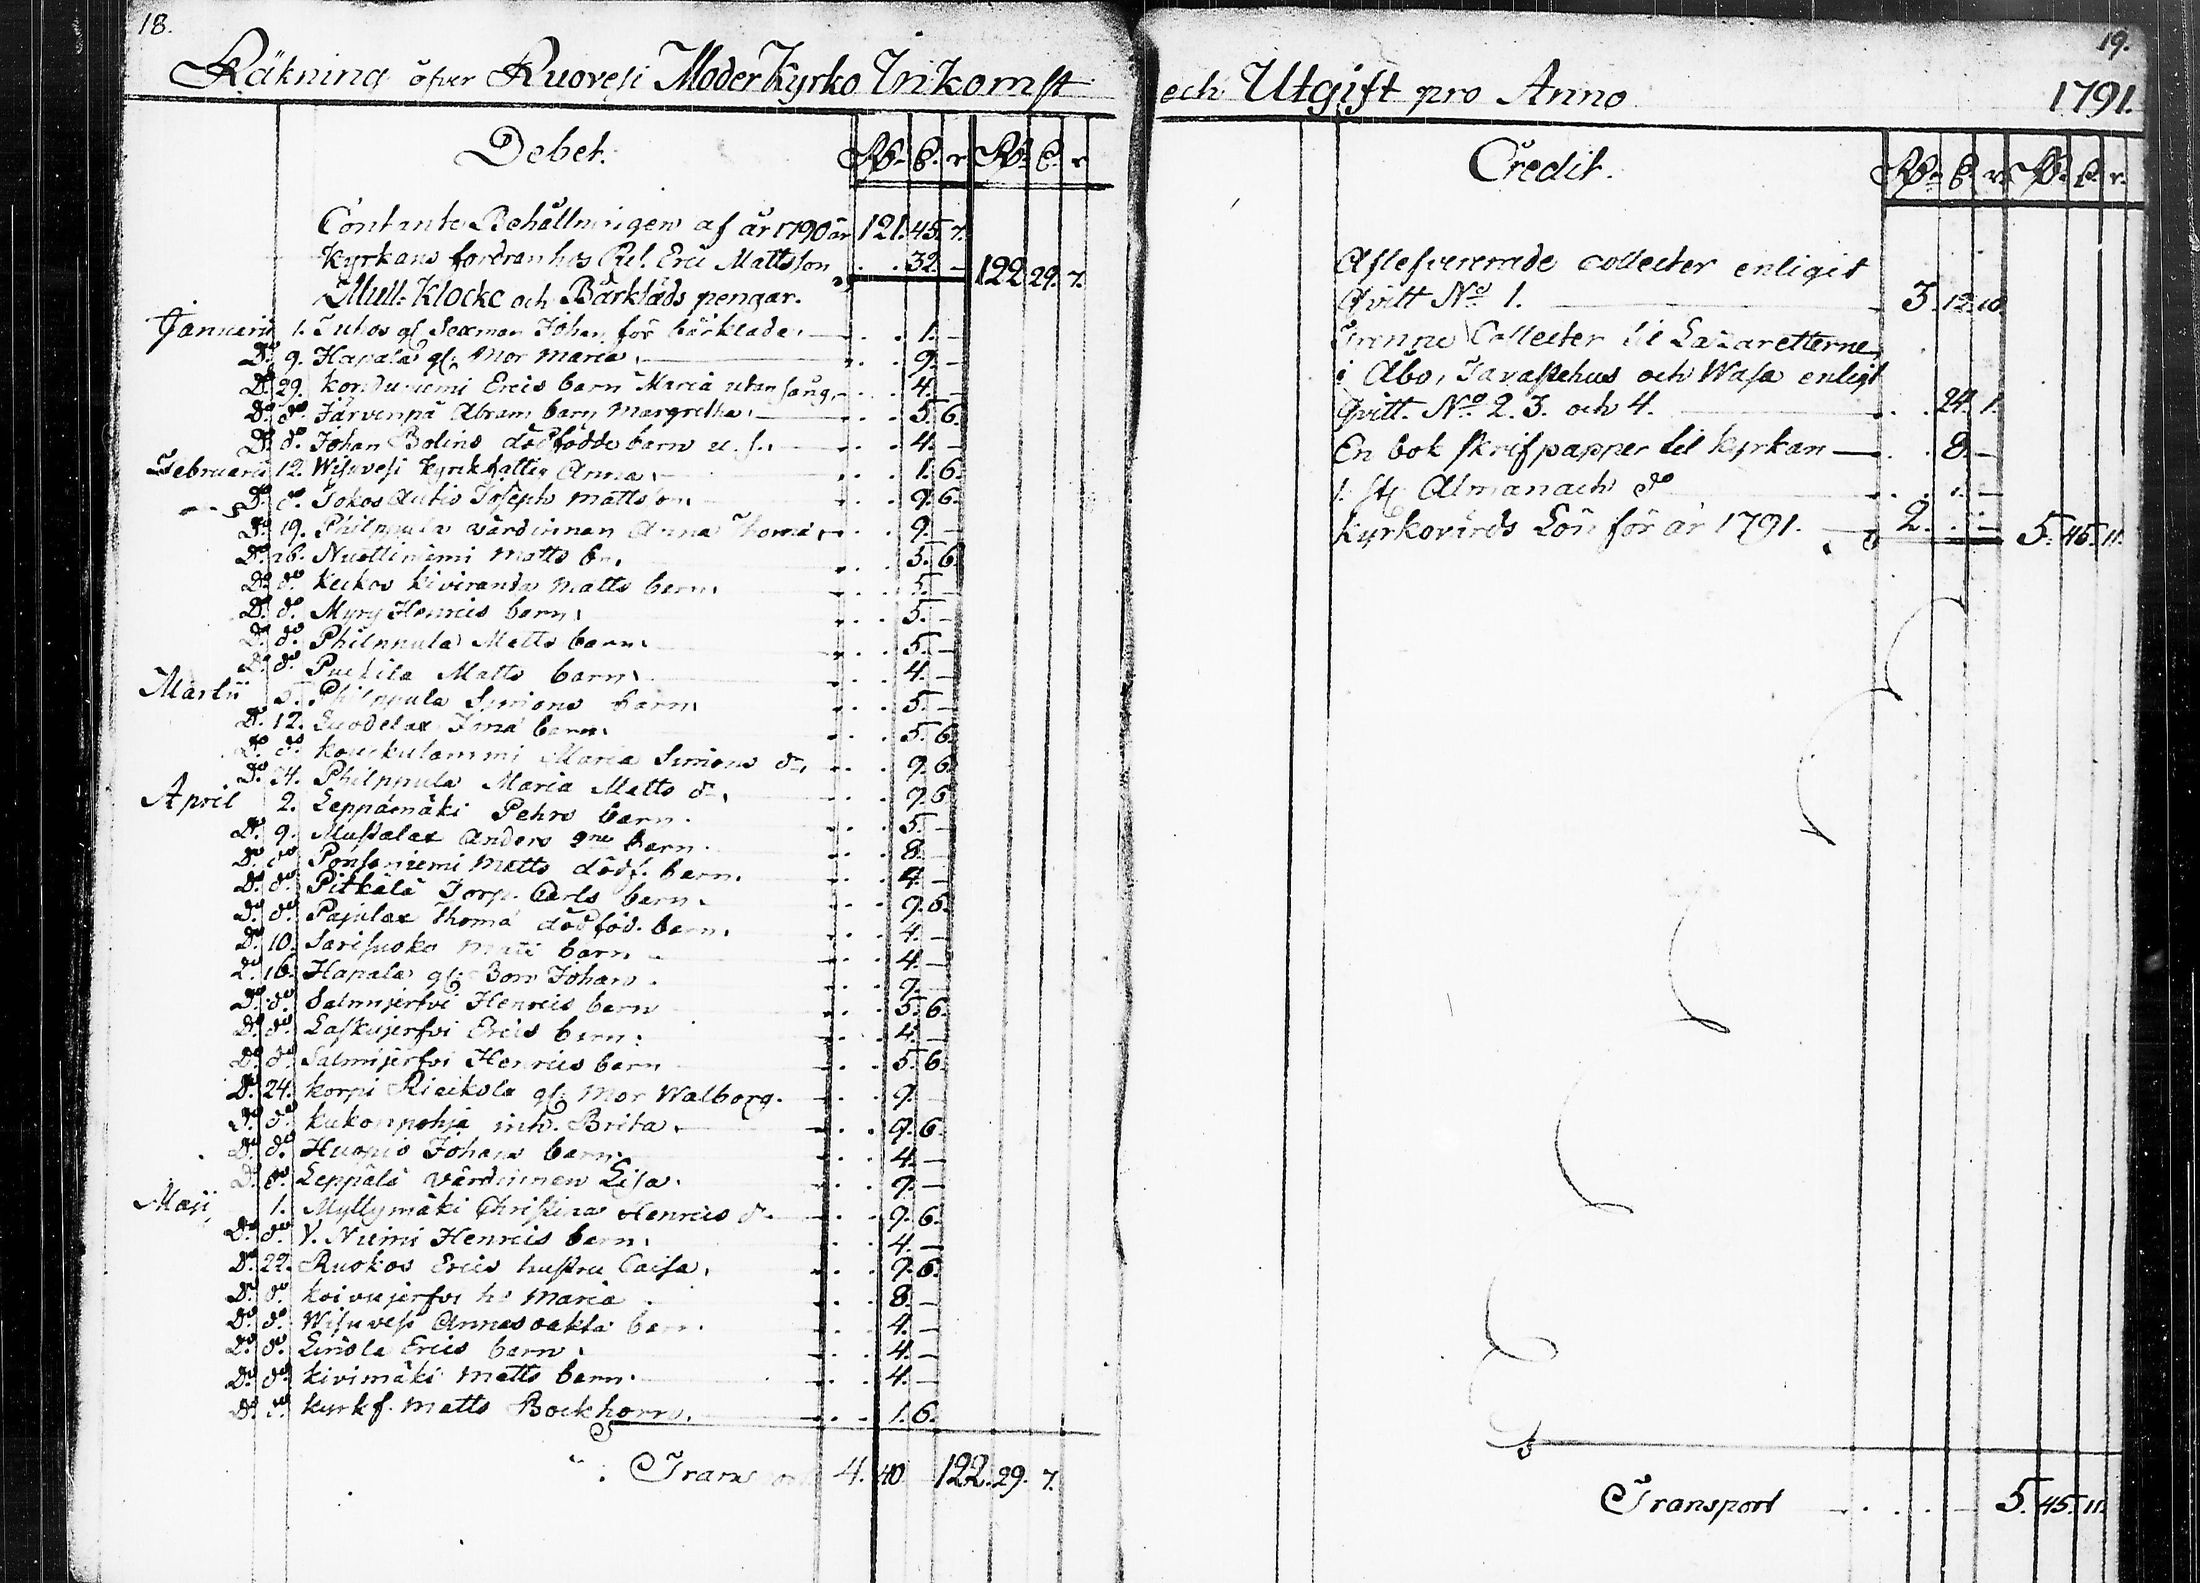 18.
Räkning öfver Ruovesi Moder Kyrko Inkomst
Debet. Rd. s. r. Rd. s. r.
Contante Behållningen af år 1790 är 121. 45. 7.
Kyrkans fordran hos Eric Mattsson . . 32. — 122. 29. 7.
Mull- Klocke och Bårkläds pengar.
Januarii 1. Juhos gl. Sexman Johan för bårklade . . 1. —
Do. 9. Hapala gl. Mor Maria . . 9. —
Do. 29. Erics barn Maria utan sång . . 4. —
Do. do. Järvenpä Abram barn Margretha . . 5. 6.
Do. do. Johan Bolins dödfödde barn u. s. . . 4. —
Februarii 12. Wisuvesi kyrckfattig Anna . . 1. 6.
Do. do. Jokos Autio Joseph Mattson . . 9. 6.
Do. 19. Philppula värdinnan Anna Thomæ . . 9. —
Do. 26. Nuottiniemi Matts bn. . . 5. 6.
Do. do. Keikos Kiviranda Matts barn . . 5. —
Do. do. Myry Henrics barn . . 5. —
Do. do. Philppula Matts barn . . 5. —
Do. do. Matts barn . . 4. —
Martii 5. Philppula Simons barn . . 5. —
Do. 12. barn . . 5. 6.
Do. do. Maria Simons dr. . . 9. 6.
Do. 24. Philppula Maria Matts dr. . . 9. 6
April 2. Leppämäki Pehrs barn . . 5. —
Do. 9. Mustalax Anders barn . . 8. —
Do. do. Ponsaniemi Matts dödf. barn . . 4. —
Do. do. Pitkälä Torp. Carls barn . . 9. 6.
Do. do. Pajulax Thomæ dödföd. barn . . 4. —
Do. 10. Sarisuoko barn . . 4. —
Do. 16. Hapala gl. Bom Johan . . 9. —
Do. do. Salmijerfvi Henrics barn . . 5. 6.
Do. do. Laskujerfvi Erics barn . . 4. —
Do. do. Salmijerfvi Henrics barn . . 5. 6.
Do. 24. Korpi gl. Mor Walborg . . 9. —
Do. do. Kukonpohja inh. Brita . . 9. 6.
Do. do. Huopio Johans barn . . 4. —
Do. do. Leppälä värdinnan Lisa . . 9. —
Maji 1. Myllymäki Christina Henrics dr. . . 9. 6.
Do. do. Y. Niemi Henrics barn . . 4. —
Do. 22. Ruokos Erics hustru Caisa . . 9. 6.
Do. do. Koivujerfvi Maria . . 8. —
Do. do. Wisuvesi Annas oäkta barn . . 4. —
Do. do. Liniola Erics barn . . 4. —
Do. do. Kivimäki Matts barn . . 4. —
Do. do. Kyrkf. Matts Bockhorn . . 1. 6.
Transport 4. 40 122. 29. 7.
19.
och Utgift pro Anno 1791.
Credit. Rd. s. r. Rd. s. r.
Aflefvererade collecter enligit
Qvitt No. 1. 3. 12. 10.
Trenne Collecter til Lazaretterne
i Åbo, Tavastehus och Wasa enligt
Qvitt. No. 2. 3. och 4. . . 24. 1.
En bok skrifpapper til kyrkan . . 8. —
1. st. Almanach do . . 1. —
Kyrkovärds Lön för år 1791. 2. . — 5. 45. 11.
Transport . . . 5. 45. 11.